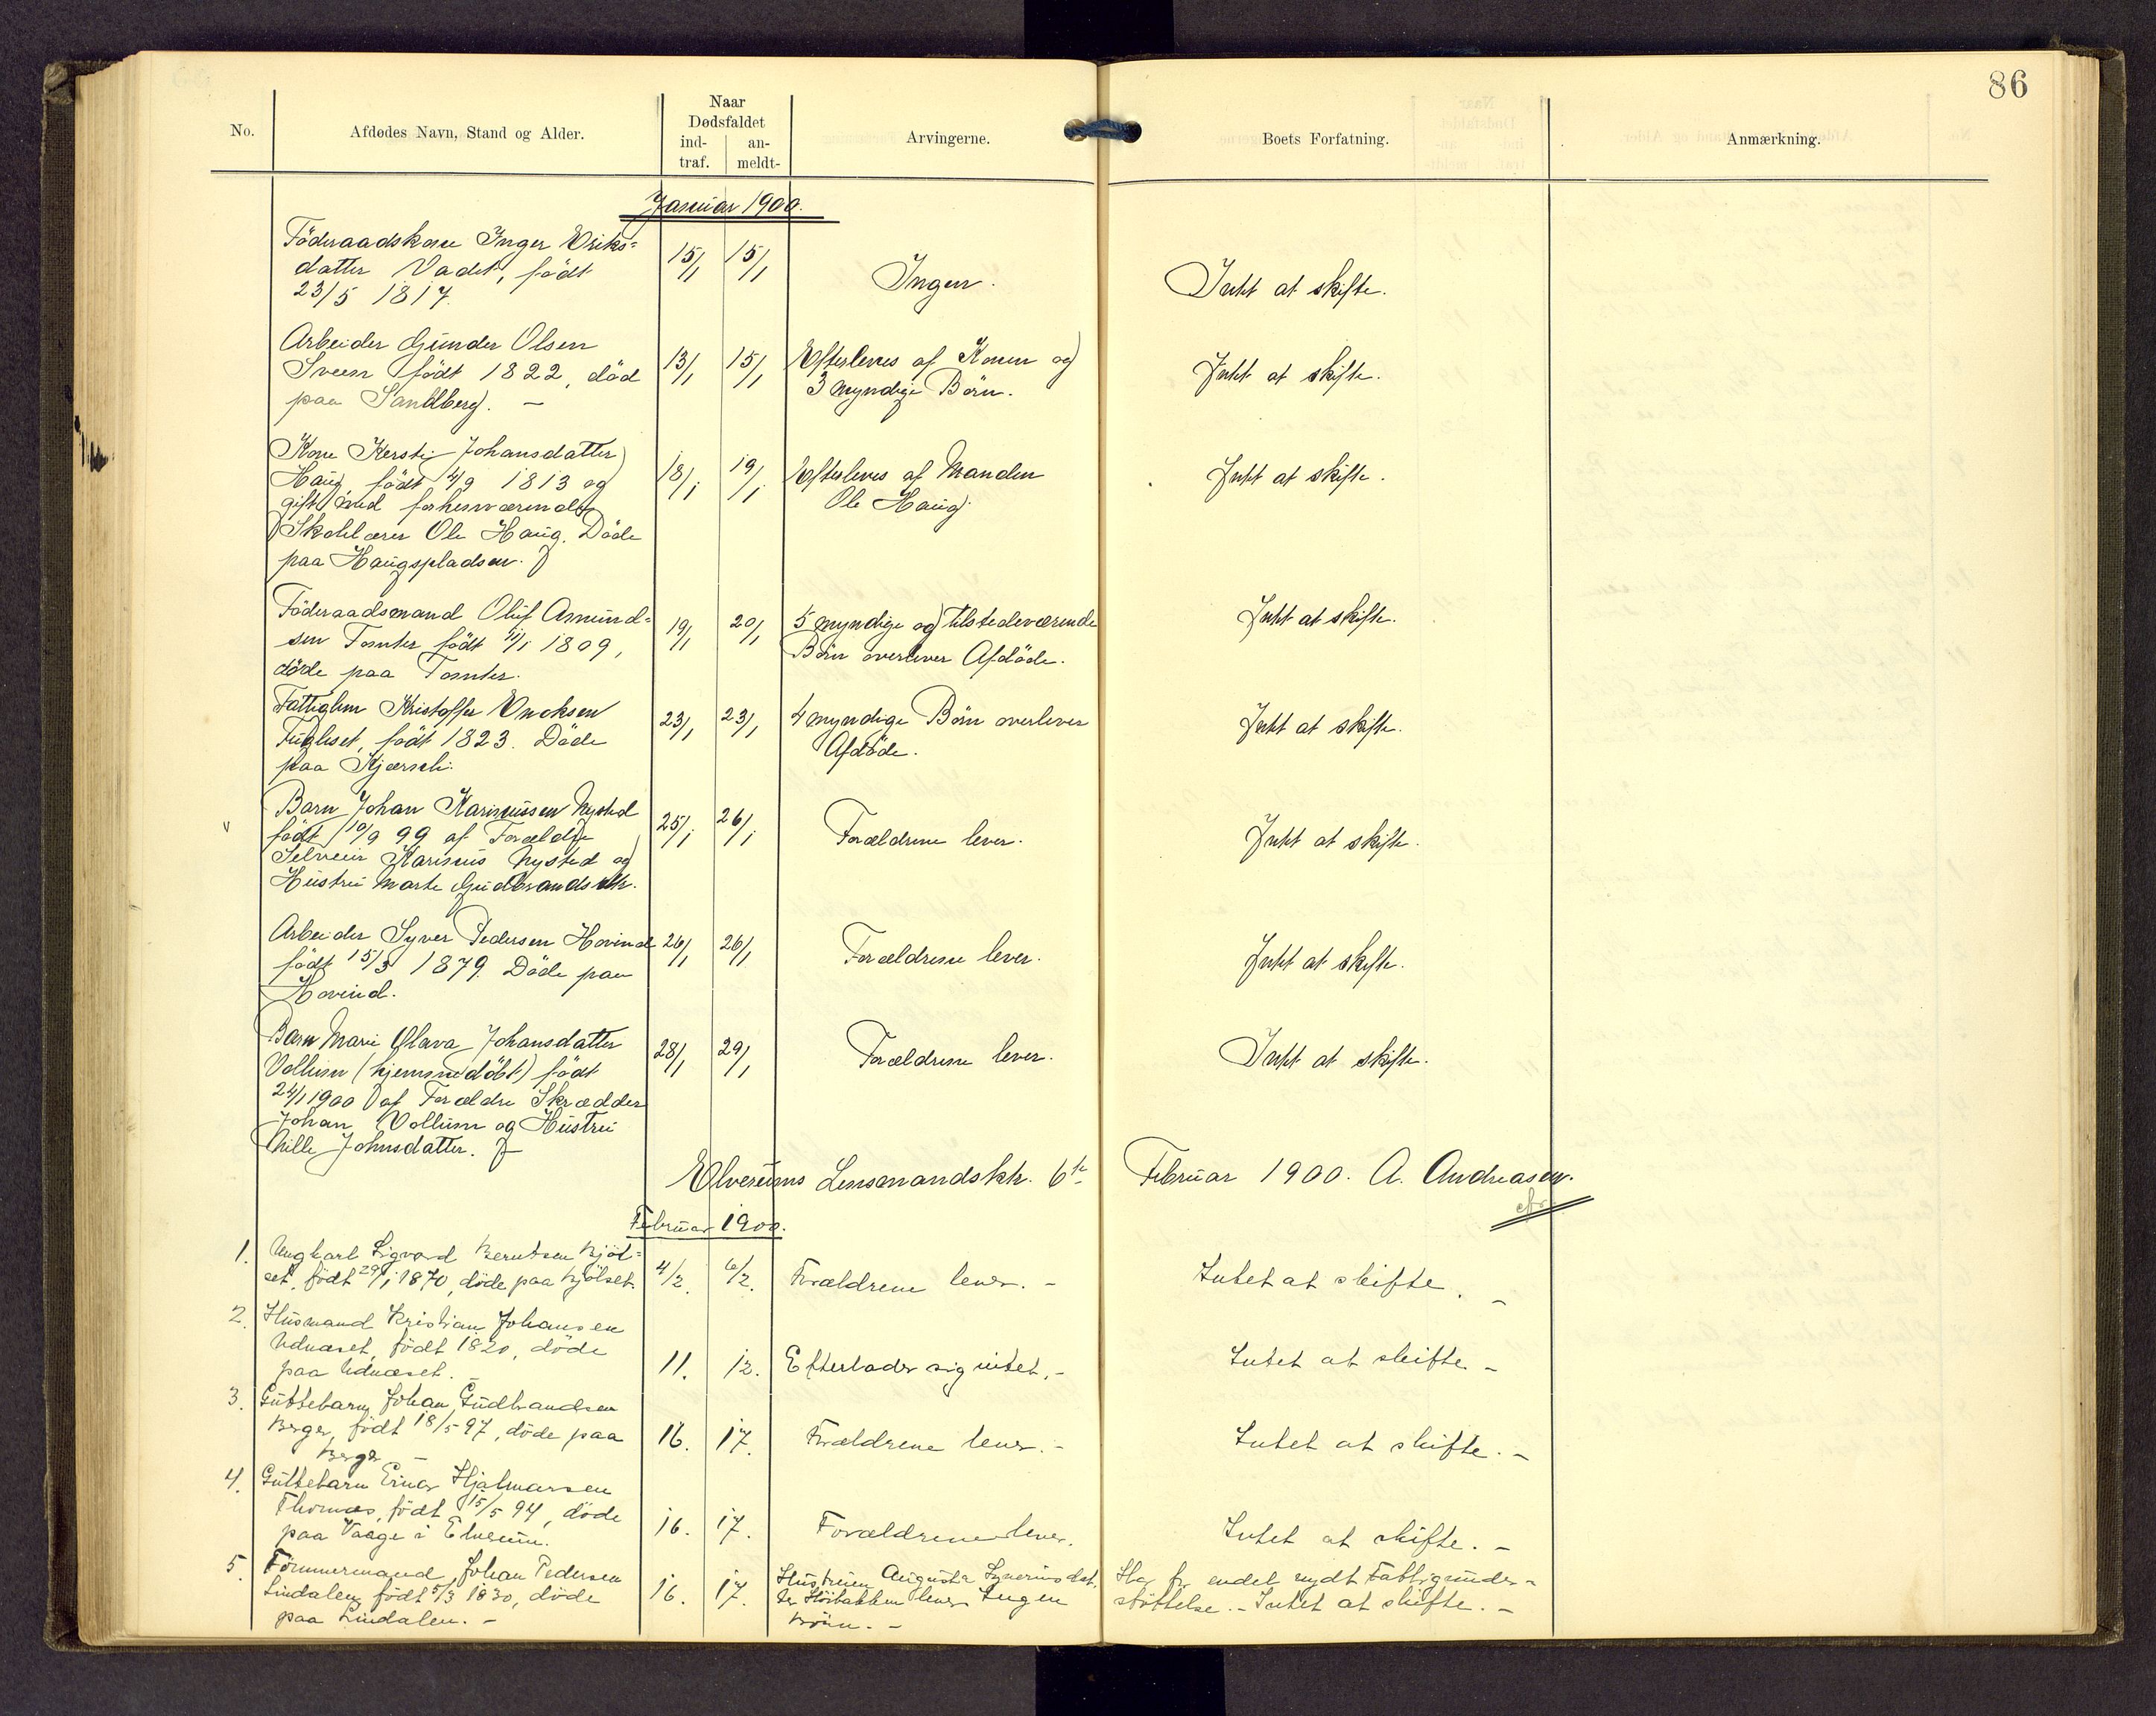 86
No.
Afdødes Navn, Stand og Alder.
Naar
Dødsfaldet
ind-
traf.
an-
meldt-
Arvingerne.
Boets Forfatning.
Anmærkning.
Januar 1900.
Föderaadskone Inger Eriks-
datter Vadet, født
23/5 1817.
15/1 15/1
Ingen.
Intet at skifte.
Arbeider Gunder Olsen
Sveen født 1822, död
paa Sandberg. —
13/1 15/1
Efterleves af Konen og
3 myndige Börn.
Intet at skifte.
Kone Kersti Johansdatter
Haug, född 4/9 1813 og
gift med forhenværende
Skolelærer Ole Haug. Döde
paa Haugspladsen.
18/1 19/1
Efterleves af Manden
Ole Haug.
Intet at skifte.
Föderaadsmand Oluf Asmund-
sen Tomter født 11/1 1809,
döde paa Tomter.
19/1 20/1
5 myndige og tilstedeværende
Börn overlever Afdöde.
Intet at skifte.
Fattiglem Kristoffer
Fugleset, født 1823. Döde
paa
23/1 23/1
4 myndige Börn overlever
Afdöde.
Intet at skifte.
Barn Johan Karinusen Nysted
født 10/9 99 af Forældre
Selveier Karinus Nysted og
Hustru Marte Gudbrandsdtr.
25/1 26/1
Forældrene lever.
Intet at skifte.
Arbeider Syver Pedersen Hovind
født 15/3 1879. Döde paa
Hovind.
26/1 26/1
Forældrene lever.
Intet at skifte.
Barn Marie Olava Johansdatter
Vollum (hjemmedöbt) født
24/1 1900 af Forældre Skrædder
Johan Vollum og Hustru
Mille Johnsdatter.
28/1 29/1
Forældrene lever.
Intet at skifte.
Elverums Lensmandsktr. 6te Februar 1900. A. Andreasen.
Februar 1900.
1. Ungkarl Sigvard Berntsen Kjöl-
set, født 29/1 1870, döde paa Kjölset.
4/2. 6/2.
Forældrene lever. -
Intet at skifte. -
2. Husmand Kristian Johansen
Udnæset, født 1820, döde
paa Udnæset. -
11. 12.
Efterlader sig intet. -
Intet at skifte -
3. Guttebarn Johan Gudbrandsen
Berger, født 18/5 97, döde paa
Berger -
16. 17.
Forældrene lever. -
Intet at skifte. -
4. Guttebarn Einar Hjalmarsen
Thornæs, født 15/5 94, döde
paa Vaage i Elverum.
16. 17.
Forældrene lever.
Intet at skifte. -
5. Tömmermand Johan Pedersen
Lindalen, født 5/3 1830, döde
paa Lindalen. -
16. 17.
Hustruen Augusta Syverinsdat-
ter lever Ingen
Börn. -
Har for endel nydt Fattigunder-
støttelse. - Intet at skifte. -